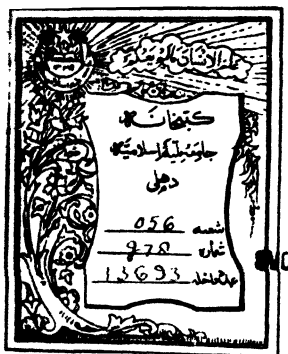 علم الانسان مالم يعلم
كتبخانہ
جامعہ ملیہ اسلامیہ
دهلی
شعبه 056
شماره 978
داخلہ 13693